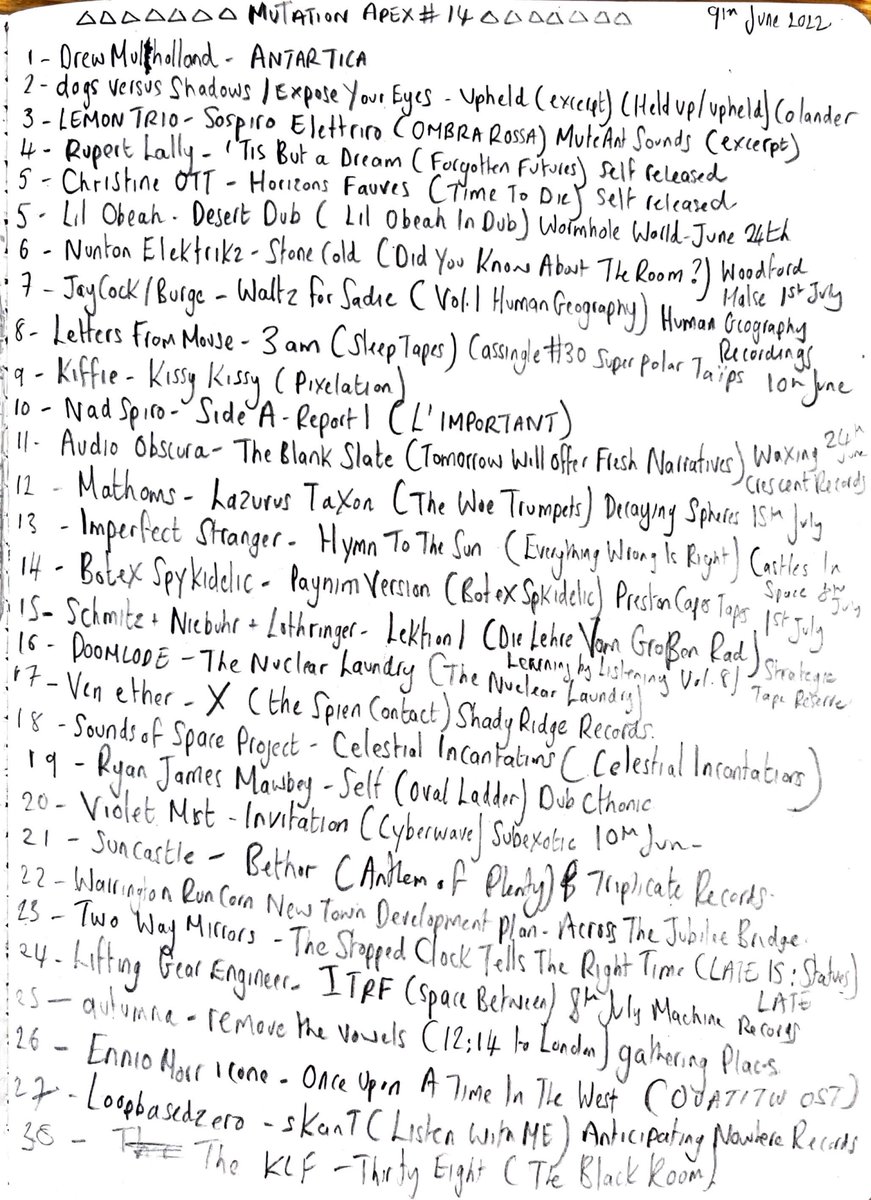 △△△△△△△ MUTATION APEX #14 △△△△△△△ 9th June 2022
1 - Drew Mulholland - ANTARTICA
2 - dogs versus Shadows / Expose Your Eyes - Upheld (excerpt) (Held up/upheld) Colander
3 - LEMON TRIO - Sospiro Elettriro (OMBRA ROSSA) MuteAnt Sounds (excerpt)
4 - Rupert Lally - 'Tis But a Dream (Forgotten Futures) Self released
5 - Christine OTT - Horizons Fauves (Time To Die) Self released
5 - Lil Obeah - Desert Dub (Lil Obeah In Dub) Wormhole World - June 24th
6 - Nunton Elektrikz - Stone Cold (Did You Know About The Room?) Woodford
Halse 1st July
7 - Jay Cock / Burge - Waltz for Sadie (Vol. 1 Human Geography) Human Geography
Recordings
8 - Letters From Mouse - 3 am (Sleep Tapes) Cassingle #30 Super polar Taïps 10th June
9 - Kiffie - Kissy Kissy (Pixelation)
10 - Nad Spiro - Side A - Report 1 (L'IMPORTANT)
11 - Audio Obscura - The Blank Slate (Tomorrow Will Offer Fresh Narratives) Waxing 24th June
Crescent Records
12 - Mathoms - Lazurus Taxon (The Woe Trumpets) Decaying Spheres 15th July
13 - Imperfect Stranger - Hymn To The Sun (Everything Wrong Is Right) Castles In
Space 8th July
14 - Botex Spykidelic - Paynim Version (Botex Spkidelic) Preston Capes Tapes 1st July
15 - Schmitz + Niebuhr + Lothringer - Lektion 1 (Die Lehre Vom Großon Rad)
Learning by Listening Vol. 8) Strategic
Tape Reserve
16 - DOOMLODE - The Nuclear Laundry (The Nuclear Laundry)
17 - Ven ether - X (the Spien Contact) Shady Ridge Records.
18 - Sounds of Space Project - Celestial Incantations (Celestial Incantations)
19 - Ryan James Mawbey - Self (Oval Ladder) Dub Cthonic
20 - Violet Mist - Invitation (Cyberwave) Subexotic 10th Jun-
21 - Suncastle - Bethor (Anthem of Plenty) Triplicate Records.
22 - Warrington Runcorn New Town Development plan - Across The Jubilee Bridge.
23 - Two Way Mirrors - The Stopped Clock Tells The Right Time (LATE IS: Statues)
LATE
24 - Lifting Gear Engineer - ITRF (Space Between) 8th July Machine Records
25 - autumna - remove the vowels (12:14 to London) gathering Places
26 - Ennio Morricone - Once Upon A Time In The West (OUATITW OST)
27 - Loopbasedzero - skanT (Listen With ME) Anticipating Nowhere Records
38 - The KLF - Thirty Eight (The Black Room)